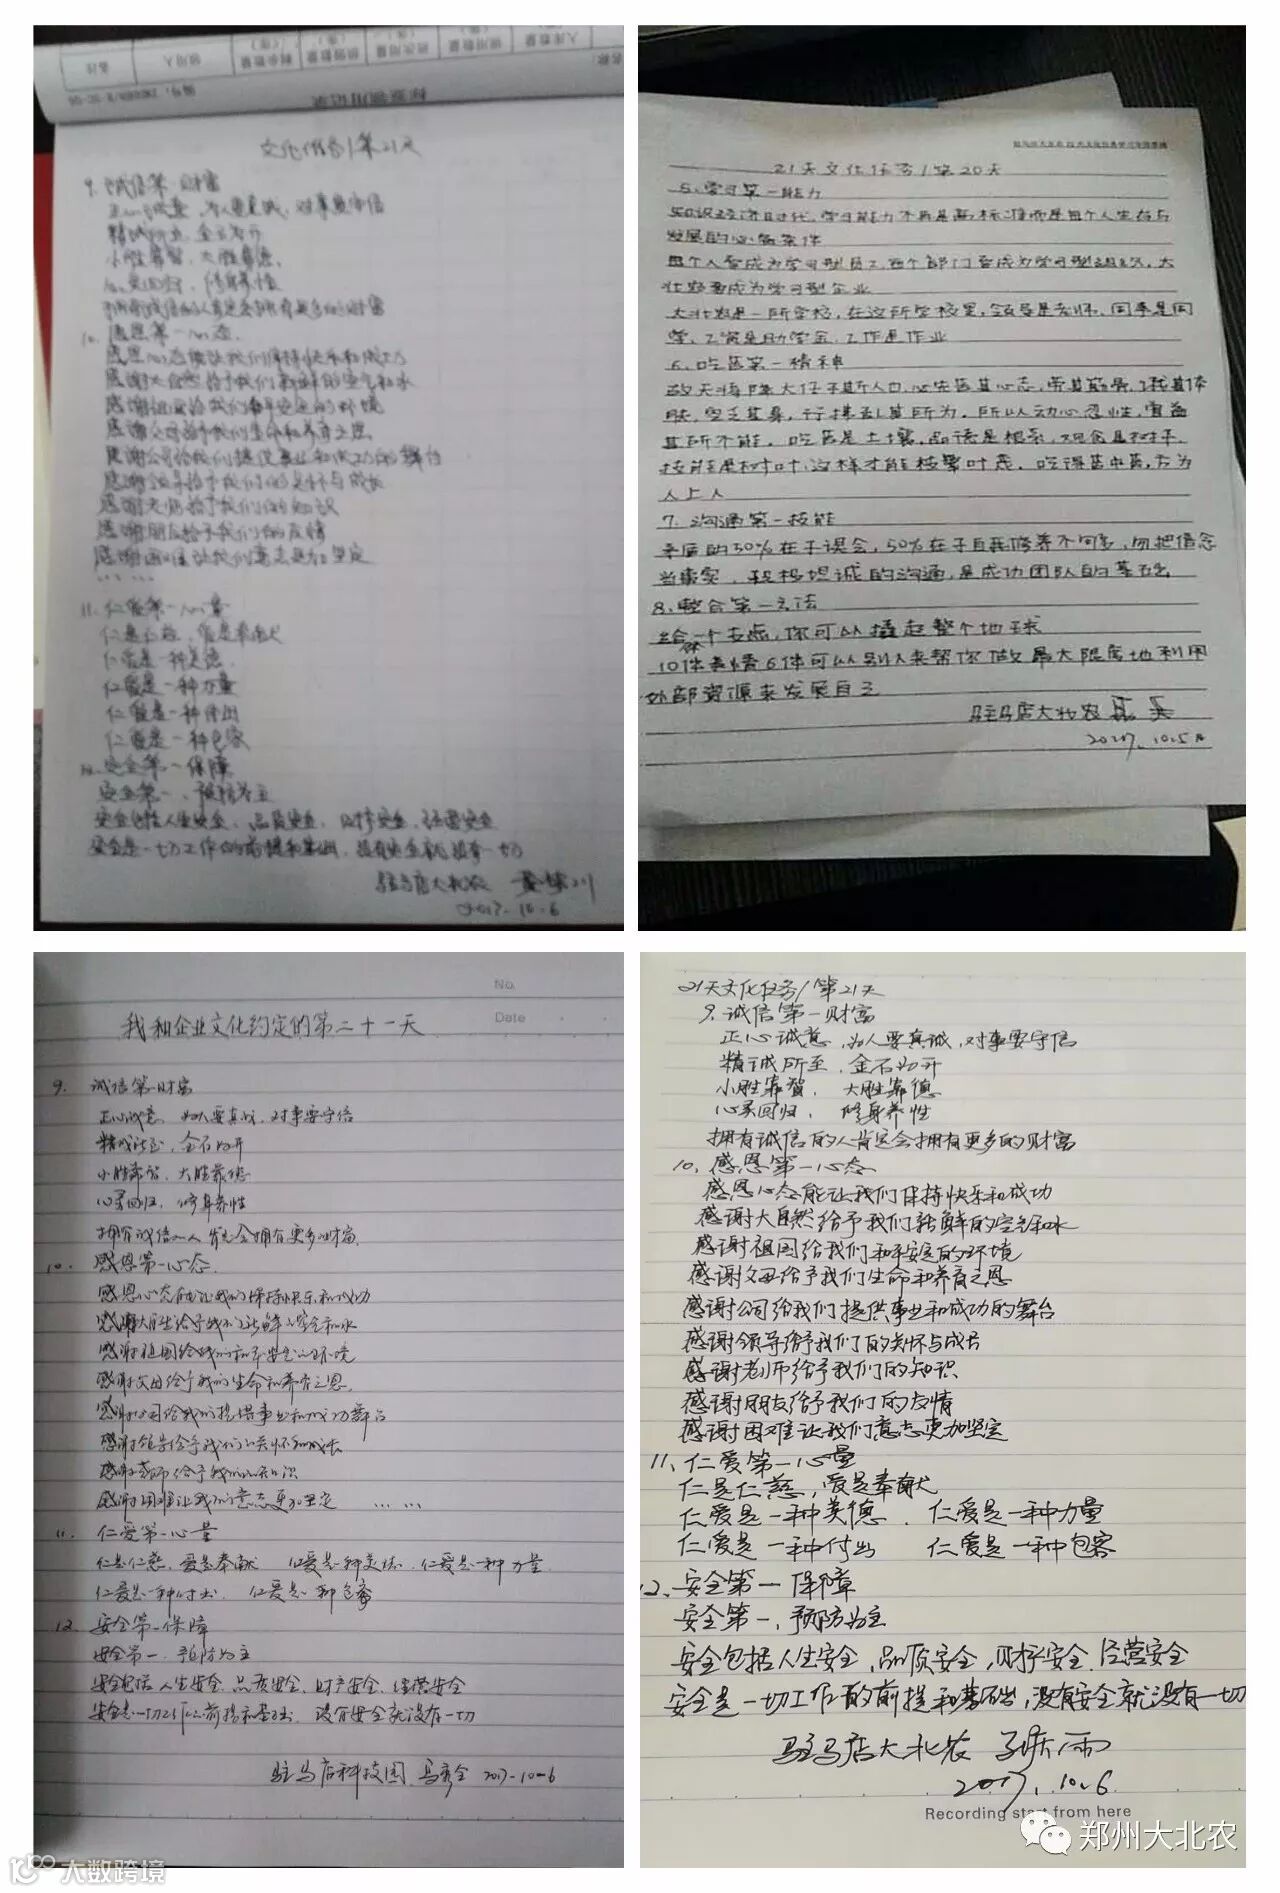 文化任务/第21天
9. 诚信第一财富
正心诚意、为人要真诚、对事要守信
精诚所至、金石为开
小胜靠智、大胜靠德
心灵回归、修身养性
10. 感恩第一心态
感恩心态能让我们保持快乐和成功
感谢大自然给予我们新鲜的空气和水
感谢祖国给我们和平安定的环境
感谢父母给予我们生命和养育之恩
感谢公司给我们提供事业和成功的舞台
感谢领导给予我们的关怀与成长
感谢老师给予我们的知识
感谢朋友给予我们的友情
感谢困难让我们意志更加坚定
……
11. 仁爱第一心量
仁是仁慈、爱是奉献
仁爱是一种美德
仁爱是一种力量
仁爱是一种付出
仁爱是一种包容
12. 安全第一保障
安全第一、预防为主
安全包括人生安全、品质安全、财产安全、经营安全
安全是一切工作的前提和基础、没有安全就没有一切
驻马店大北农
2017.10.6
21天文化任务/第20天
5、学习第一能力
知识经济时代,学习能力不再是高标准而是每个人生存与
发展的必备条件
每个人要成为学习型员工,每个部门要成为学习型组织,大
北农要成为学习型企业
大北农是一所学校,在这所学校里,领导是老师、同事是同
学、工资是助学金、工作是作业
6、吃苦第一精神
故天将降大任于斯人也,必先苦其心志,劳其筋骨,饿其体
肤,空乏其身,行拂乱其所为,所以动心忍性,曾益
其所不能。吃苦是土壤,品德是根系,观念是树干,
技能是树叶,这样才能枝繁叶茂。吃得苦中苦,方为
人上人
7、沟通第一技能
矛盾的50%在于误会,50%在于自我修养不够,勿把信念
当事实,积极坦诚的沟通,是成功团队的基石
8、整合第一方法
给一个支点,你可以撬起整个地球
10件事情6件可以别人来帮你做最大限度地利用
外部资源来发展自己
驻马店大北农
2017.10.5
No.
Date
我和企业文化约定的第二十一天
9. 诚信第一财富
正心诚意、为人要真诚、对事要守信
精诚所至、金石为开
小胜靠智、大胜靠德
心灵回归、修身养性
拥有诚信的人肯定会拥有更多财富
10. 感恩第一心态
感恩心态能让我们保持快乐和成功
感谢大自然给予我们新鲜的空气和水
感谢祖国给我们和平安定的环境
感谢父母给予我们生命和养育之恩
感谢公司给我们提供事业和成功舞台
感谢领导给予我们的关怀和成长
感谢老师给予我们的知识
感谢困难让我们意志更加坚定 ……
11. 仁爱第一心量
仁是仁慈、爱是奉献 仁爱是一种美德、仁爱是一种力量
仁爱是一种付出、仁爱是一种包容
12. 安全第一保障
安全第一、预防为主
安全包括人生安全、品质安全、财产安全、经营安全
安全是一切工作的前提和基础、没有安全就没有一切
驻马店科技园 2017-10-6
21天文化任务/第21天
9. 诚信第一财富
正心诚意,为人要真诚,对事要守信
精诚所至,金石为开
小胜靠智, 大胜靠德
心灵回归, 修身养性
拥有诚信的人肯定会拥有更多的财富
10、感恩第一心态
感恩心态能让我们保持快乐和成功
感谢大自然给予我们新鲜的空气和水
感谢祖国给我们和平安定的环境
感谢父母给予我们生命和养育之恩
感谢公司给我们提供事业和成功的舞台
感谢领导给予我们的关怀与成长
感谢老师给予我们的知识
感谢朋友给予我们的友情
感谢困难让我们意志更加坚定
11、仁爱第一心量
仁是仁慈,爱是奉献
仁爱是一种美德、 仁爱是一种力量
仁爱是一种付出 仁爱是一种包容
12、安全第一保障
安全第一,预防为主
安全包括人生安全,品质安全,财产安全,经营安全
安全是一切工作的前提和基础,没有安全就没有一切
驻马店大北农
2017.10.6
Recording start from here
郑州大北农
大数跨境